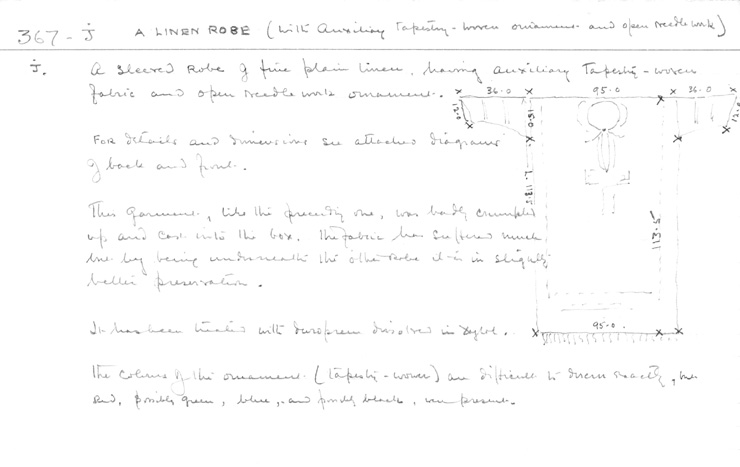 367 - j A LINEN ROBE (with Auxiliary Tapestry-woven ornament and open needlework)
j. A sleeved Robe of fine plain linen, having auxiliary Tapestry-woven
fabric and open needlework ornament.
36.0 95.0 36.0
15.0 15.0 12.0
For details and dimensions see attached diagrams
of back and front.
L. 113.5
113.5
This garment, like the preceding one, was badly crumpled
up and cast into the box. The fabric has suffered much
but by being underneath the other robe it is in slightly
better preservation.
It has been treated with Duroprene dissolved in Xylol.
95.0
The colours of the ornament (tapestry-woven) are difficult to discern exactly, but
red, possibly green, blue, and possibly black, were present.